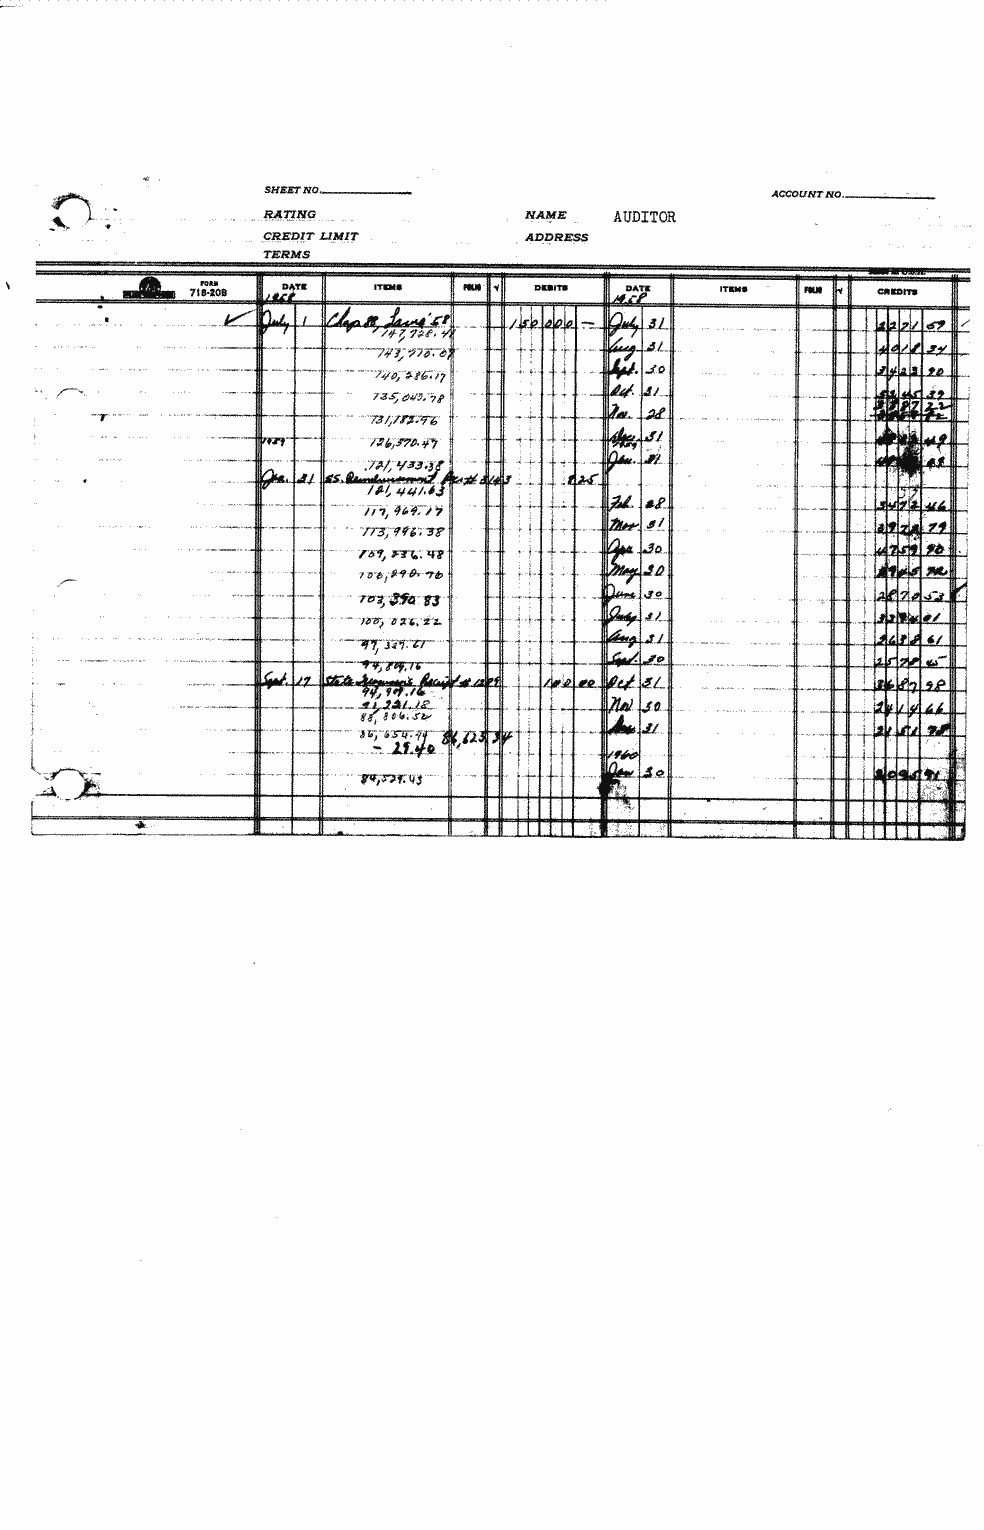 SHEET NO.
ACCOUNT NO.
RATING NAME AUDITOR
CREDIT LIMIT ADDRESS
TERMS
FORM 718-20B DATE ITEMS FOLIO √ DEBITS DATE ITEMS FOLIO √ CREDITS
1958 1958
July 1 Chap 88, Laws '58 150 000 — July 31 2271 59
147,728.41
Aug 31 4018 34
143,710.07
Sept. 30 3423 90
140,286.17
Oct. 31 39
135,040.78
3887 22
Nov. 28
131,182.96
1959 126,370.47 Dec. 31 49
1959
Jan. 31 09
121,433.38
Jan. 31 SS. Reimbursement 8 25
121,441.63
Feb. 28 3472 46
117,969.17
Mar 31 3972 79
113,996.38
Apr 30 4759 90
109,236.48
May 30
June 30 2870 53
July 31 01
100,026.22
Aug 31 2638 61
97,387.61
Sept. 30 2578 45
94,809.16
Sept. 17 State Receipt # 1299 100 00 Oct 31 3687 98
94,909.16
91,221.18 Nov 30 2414 66
88,806.52
Dec 31 2151 78
86,654.74 86,625.34
- 29.40
1960
Jan 30 2095 91
84,529.43